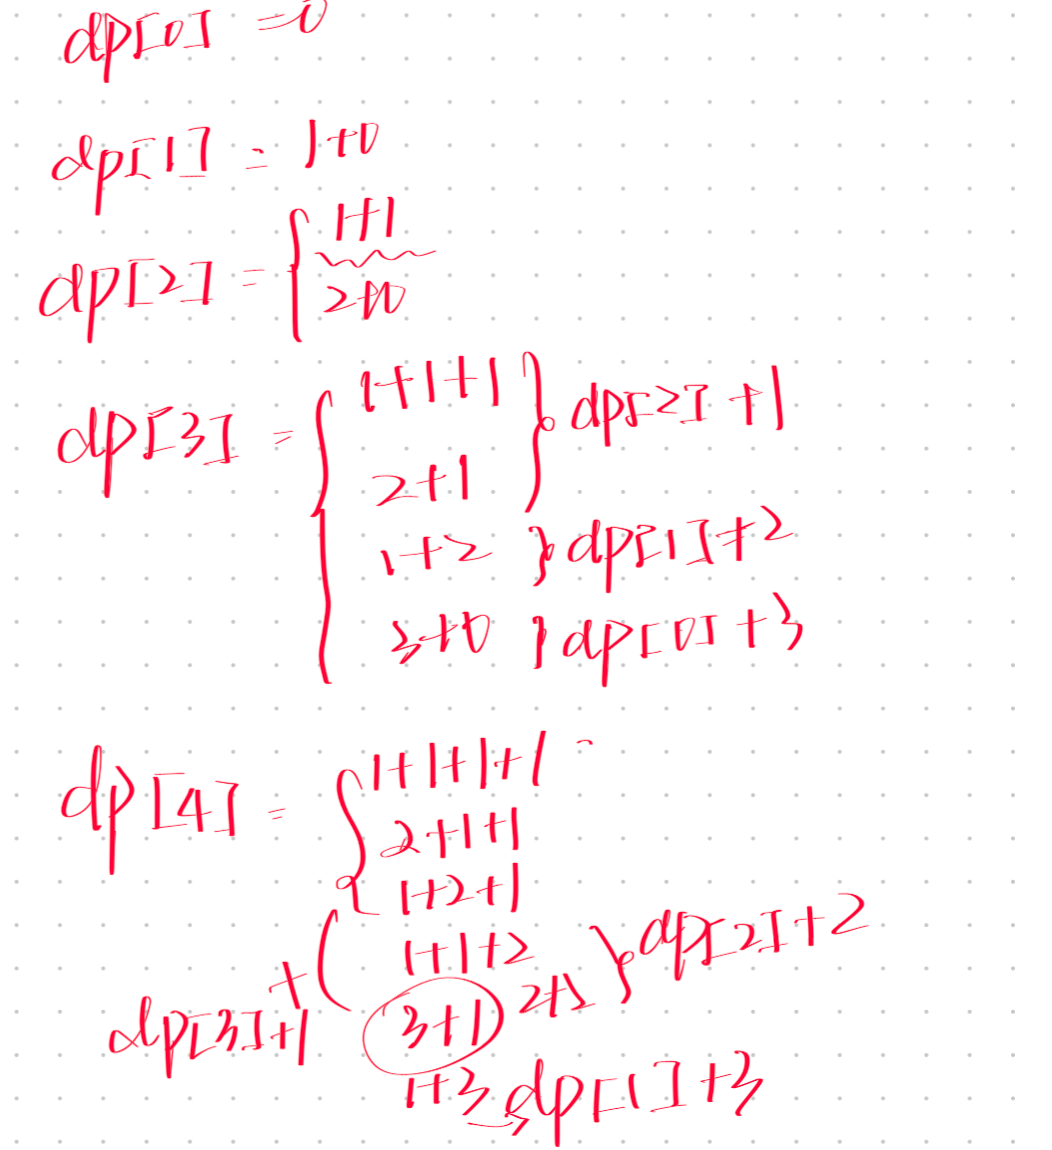 dp[0] = 0
dp[1] = 1+0
dp[2] = { 1+1
2+0
dp[3] = { 1+1+1 } dp[2]+1
2+1
1+2 } dp[1]+2
3+0 } dp[0]+3
dp[4] = { 1+1+1+1
2+1+1
1+2+1
1+1+2 } dp[2]+2
dp[3]+1 + ( 3+1
1+3 dp[1]+3